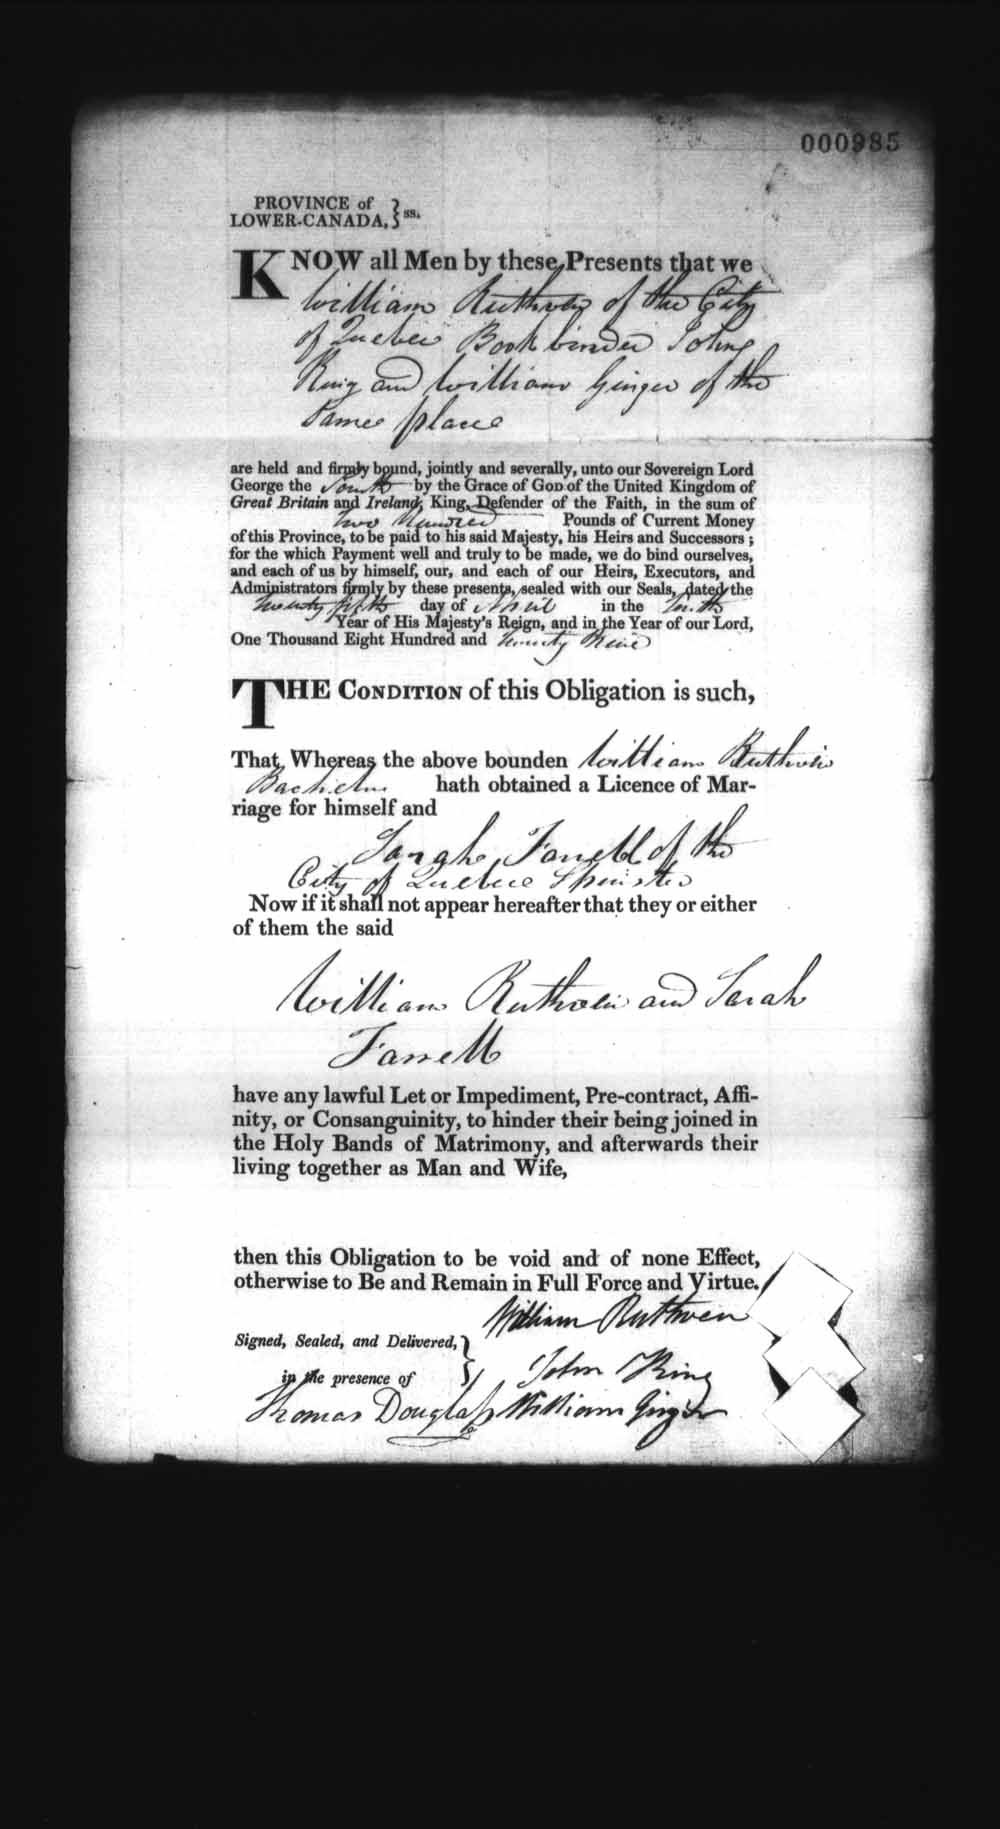 000985
PROVINCE of
LOWER-CANADA, } ss.
KNOW all Men by these Presents that we
William Ruthven of the City
of Quebec Bookbinder John
King and William Ginger of the
Same place
are held and firmly bound, jointly and severally, unto our Sovereign Lord
George the Fourth by the Grace of GOD of the United Kingdom of
Great Britain and Ireland, King, Defender of the Faith, in the sum of
Two Hundred Pounds of Current Money
of this Province, to be paid to his said Majesty, his Heirs and Successors;
for the which Payment well and truly to be made, we do bind ourselves,
and each of us by himself, our, and each of our Heirs, Executors, and
Administrators firmly by these presents, sealed with our Seals, dated the
Twenty fifth day of April in the Tenth
Year of His Majesty's Reign, and in the Year of our Lord,
One Thousand Eight Hundred and Twenty Nine
THE CONDITION of this Obligation is such,
That Whereas the above bounden William Ruthven
Bachelor hath obtained a Licence of Mar-
riage for himself and
Sarah Farrell of the
City of Quebec Spinster
Now if it shall not appear hereafter that they or either
of them the said
William Ruthven and Sarah
Farrell
have any lawful Let or Impediment, Pre-contract, Affi-
nity, or Consanguinity, to hinder their being joined in
the Holy Bands of Matrimony, and afterwards their
living together as Man and Wife,
then this Obligation to be void and of none Effect,
otherwise to Be and Remain in Full Force and Virtue.
William Ruthven
Signed, Sealed, and Delivered, }
in the presence of John King
Thomas Douglass William Ginger